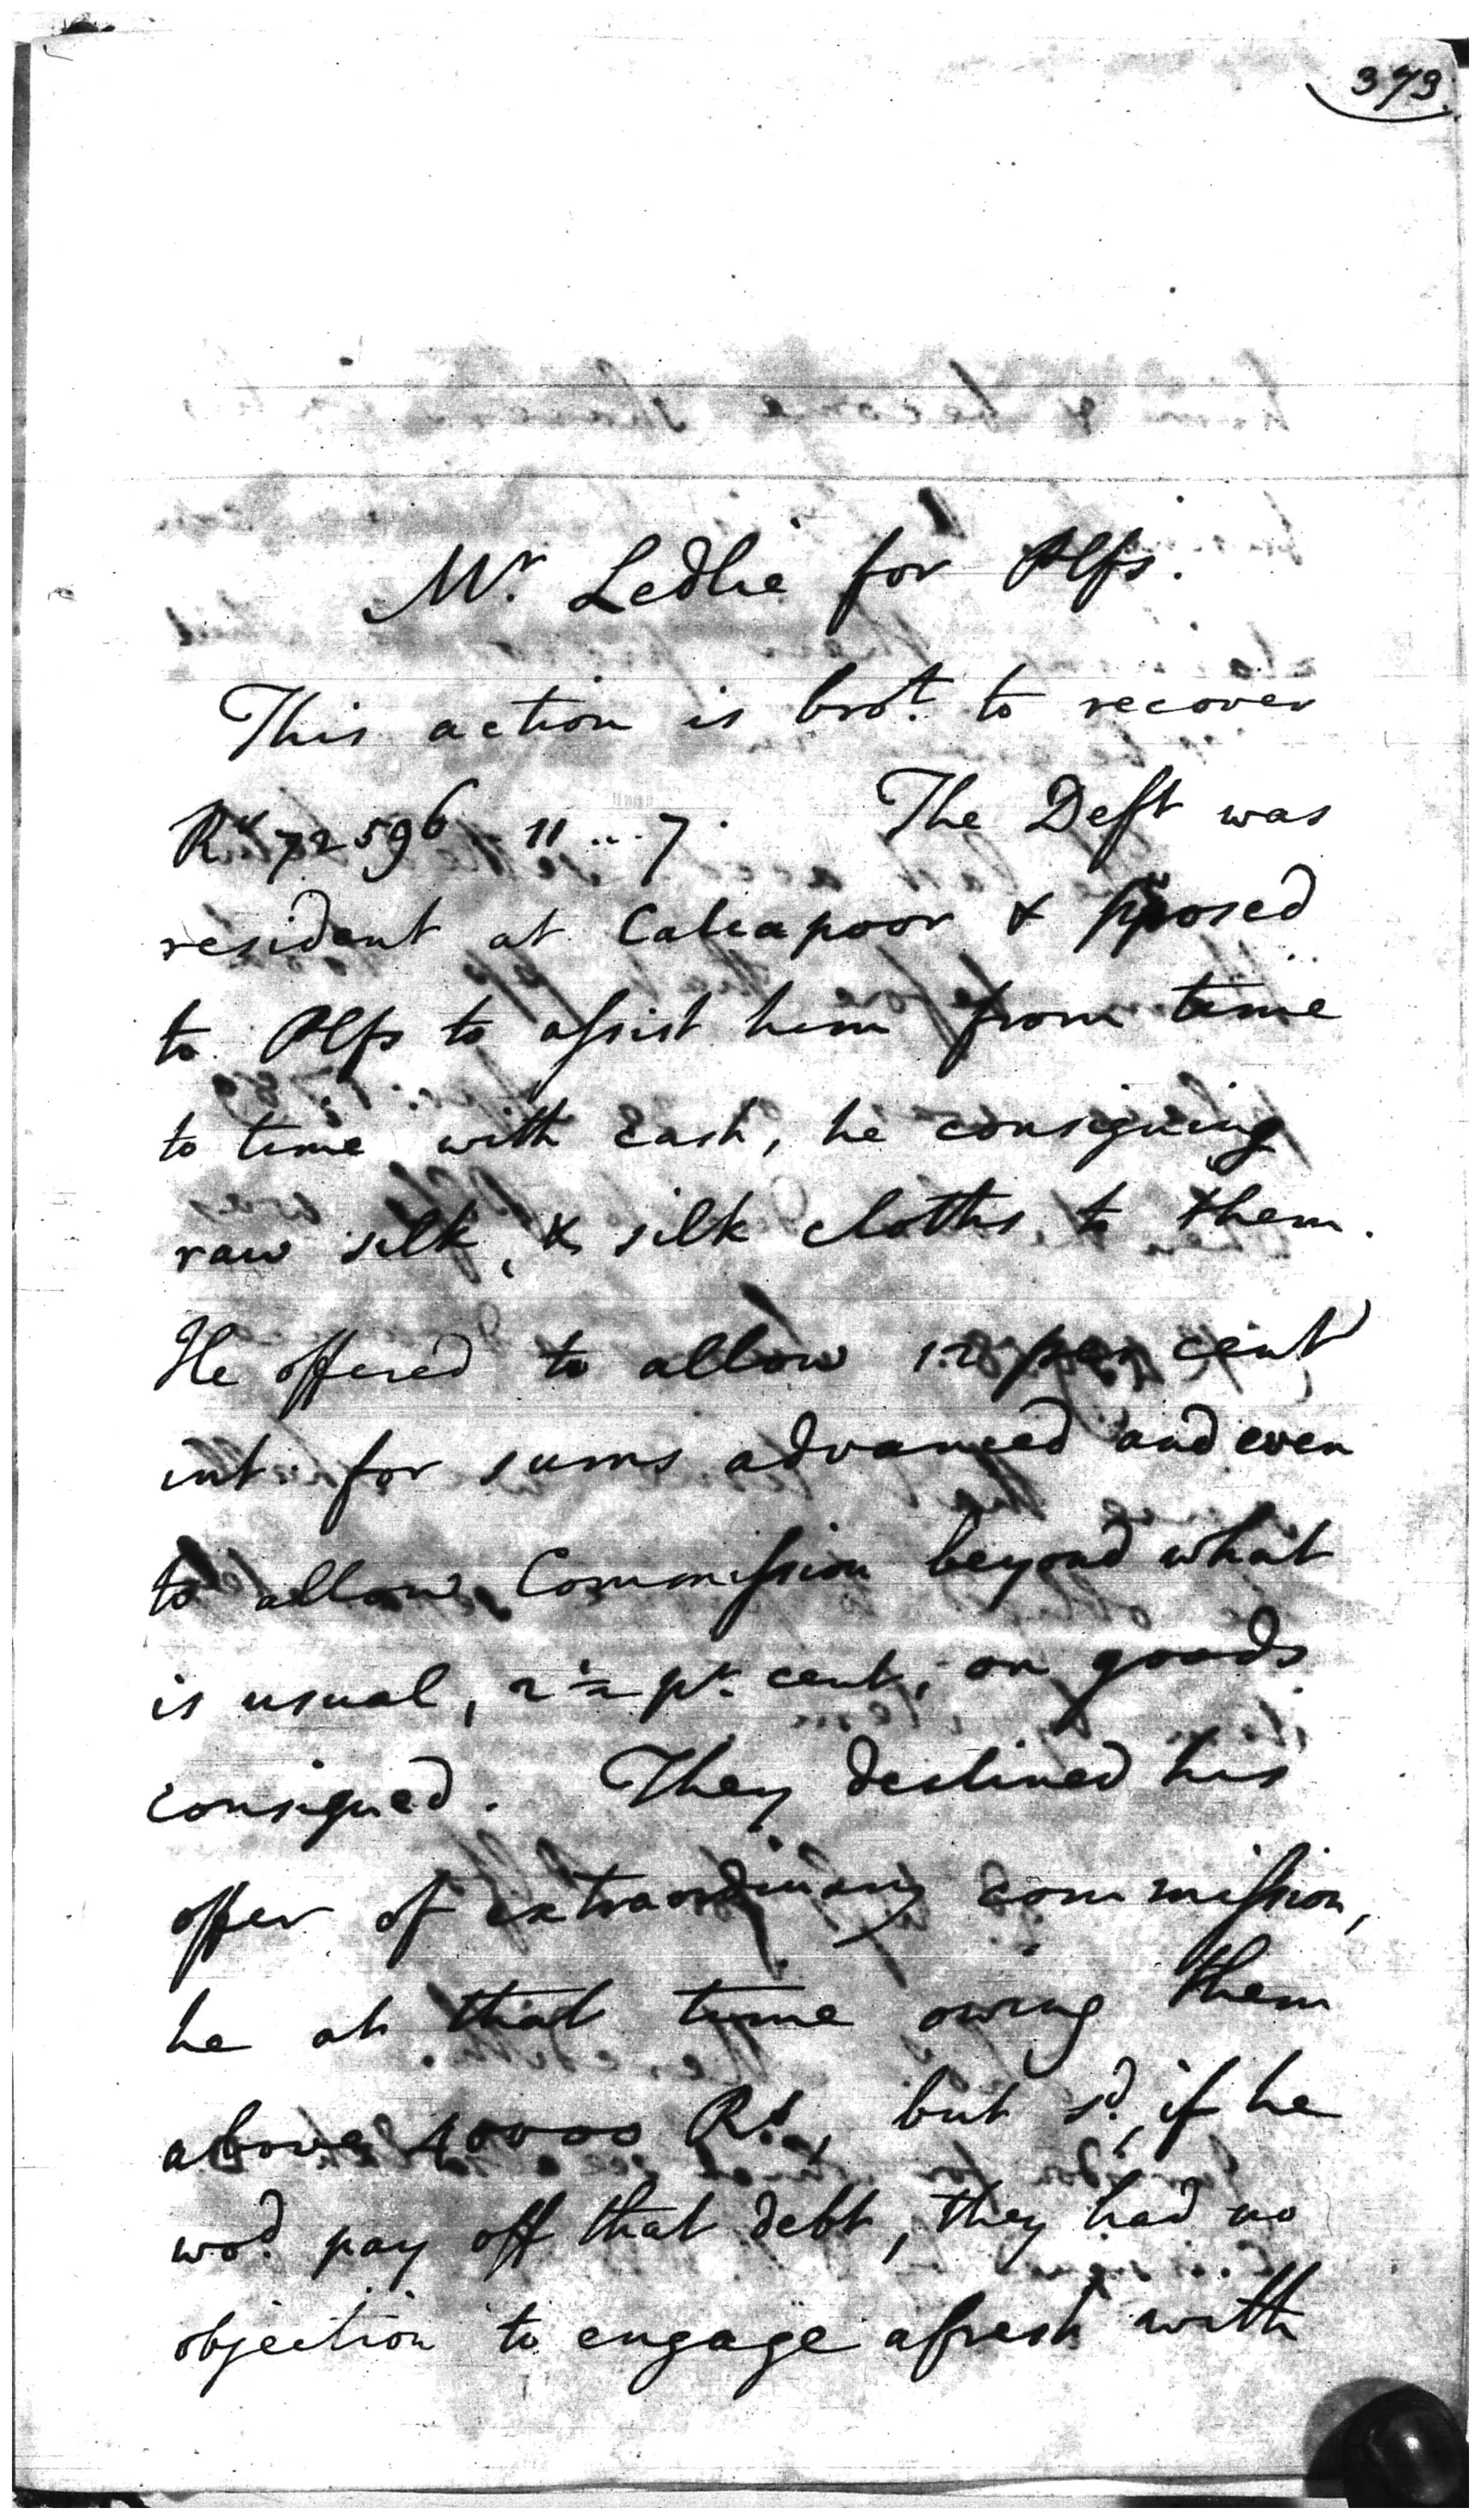 373.
Mr. Ledlie for Plfs.
This action is brot. to recover
Rs 72596 - 11 ... 7. The Deft was
resident at Caliapoor & pposed
to Plfs to assist him from time
to time with Cash, he consigning
raw silk, & silk cloths, to them.
He offered to allow 12 per cent
int. for sums advanced and even
to allow Commission beyond what
is usual, 2½ pr. cent, on goods
consigned. They declined his
offer of extraordinary commission,
he at that time owing them
above 40000 Rs., but sd., if he
wod. pay off that debt, they had no
objection to engage afresh with